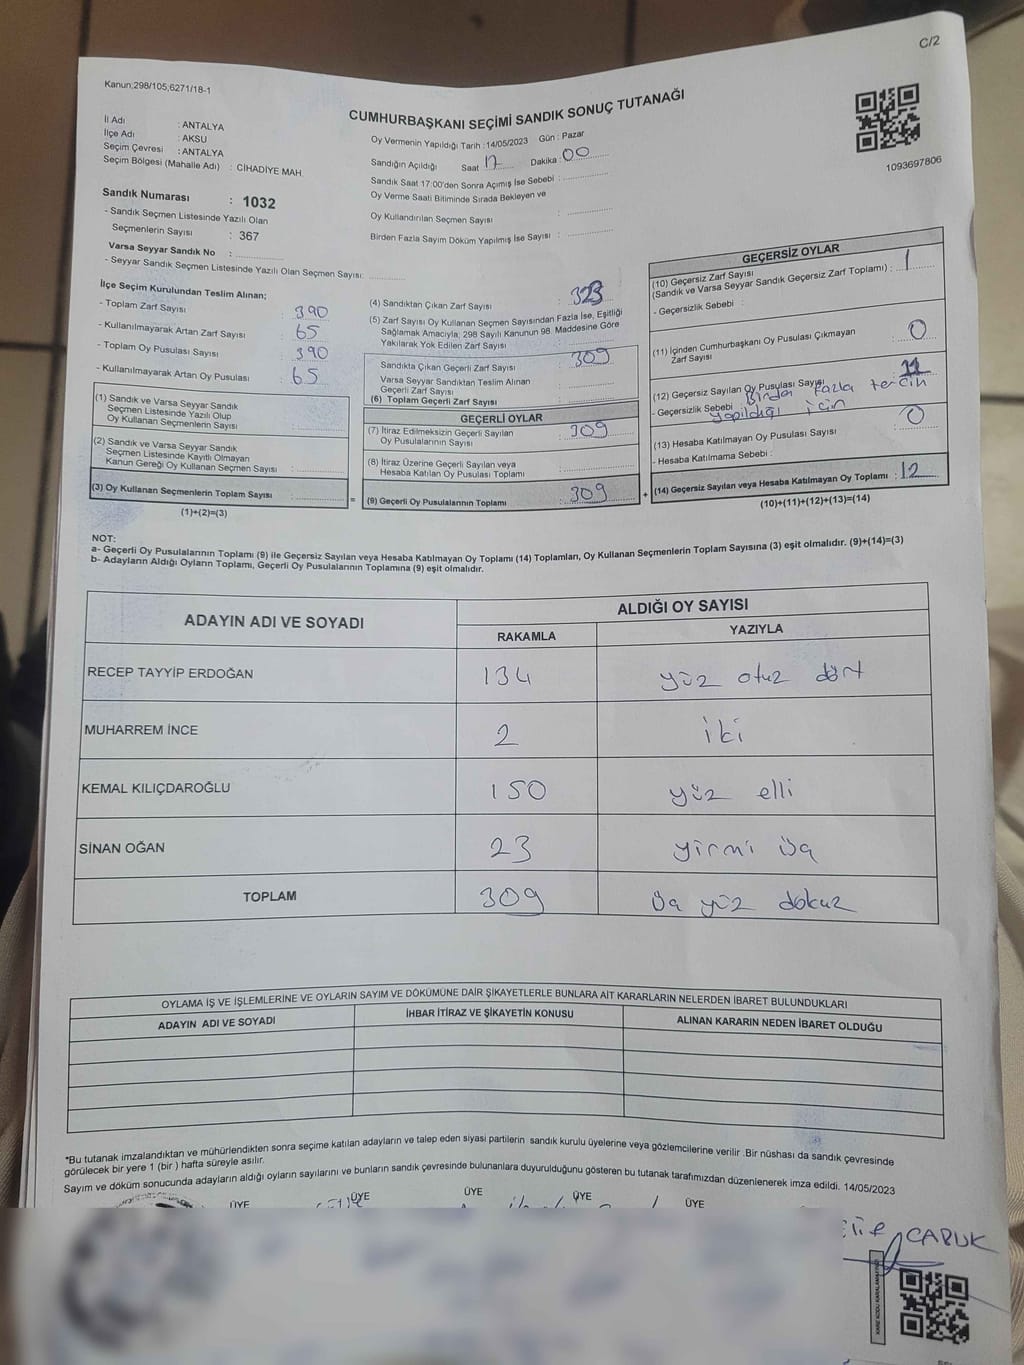 C/2
Kanun;298/105;6271/18-1
CUMHURBAŞKANI SEÇİMİ SANDIK SONUÇ TUTANAĞI
1093697806
İl Adı : ANTALYA
İlçe Adı : AKSU
Seçim Çevresi : ANTALYA
Seçim Bölgesi (Mahalle Adı) : CİHADİYE MAH.
Sandık Numarası : 1032
- Sandık Seçmen Listesinde Yazılı Olan
Seçmenlerin Sayısı : 367
Varsa Seyyar Sandık No :
- Seyyar Sandık Seçmen Listesinde Yazılı Olan Seçmen Sayısı:
Oy Vermenin Yapıldığı Tarih : 14/05/2023 Gün : Pazar
Sandığın Açıldığı Saat 17 Dakika : 00
Sandık Saat 17:00'den Sonra Açımış İse Sebebi :
Oy Verme Saati Bitiminde Sırada Bekleyen ve
Oy Kullandırılan Seçmen Sayısı :
Birden Fazla Sayım Döküm Yapılmış İse Sayısı :
İlçe Seçim Kurulundan Teslim Alınan;
- Toplam Zarf Sayısı : 390
- Kullanılmayarak Artan Zarf Sayısı : 65
- Toplam Oy Pusulası Sayısı : 390
- Kullanılmayarak Artan Oy Pusulası : 65
(1) Sandık ve Varsa Seyyar Sandık
Seçmen Listesinde Yazılı Olup
Oy Kullanan Seçmenlerin Sayısı :
(2) Sandık ve Varsa Seyyar Sandık
Seçmen Listesinde Kayıtlı Olmayan
Kanun Gereği Oy Kullanan Seçmen Sayısı :
(3) Oy Kullanan Seçmenlerin Toplam Sayısı :
(1)+(2)=(3)
(4) Sandıktan Çıkan Zarf Sayısı : 323
(5) Zarf Sayısı Oy Kullanan Seçmen Sayısından Fazla İse, Eşitliği
Sağlamak Amacıyla; 298 Sayılı Kanunun 98. Maddesine Göre
Yakılarak Yok Edilen Zarf Sayısı :
Sandıkta Çıkan Geçerli Zarf Sayısı : 309
Varsa Seyyar Sandıktan Teslim Alınan
Geçerli Zarf Sayısı :
(6) Toplam Geçerli Zarf Sayısı :
GEÇERLİ OYLAR
(7) İtiraz Edilmeksizin Geçerli Sayılan
Oy Pusulalarının Sayısı : 309
(8) İtiraz Üzerine Geçerli Sayılan veya
Hesaba Katılan Oy Pusulası Toplamı :
= (9) Geçerli Oy Pusulalarının Toplamı : 309 +
GEÇERSİZ OYLAR
(10) Geçersiz Zarf Sayısı
(Sandık ve Varsa Seyyar Sandık Geçersiz Zarf Toplamı) : 1
- Geçersizlik Sebebi :
(11) İçinden Cumhurbaşkanı Oy Pusulası Çıkmayan
Zarf Sayısı : 0
(12) Geçersiz Sayılan Oy Pusulası Sayısı : 11
- Geçersizlik Sebebi Birden fazla tercih
yapıldığı için
(13) Hesaba Katılmayan Oy Pusulası Sayısı : 0
- Hesaba Katılmama Sebebi :
(14) Geçersiz Sayılan veya Hesaba Katılmayan Oy Toplamı : 12
(10)+(11)+(12)+(13)=(14)
NOT:
a- Geçerli Oy Pusulalarının Toplamı (9) ile Geçersiz Sayılan veya Hesaba Katılmayan Oy Toplamı (14) Toplamları, Oy Kullanan Seçmenlerin Toplam Sayısına (3) eşit olmalıdır. (9)+(14)=(3)
b- Adayların Aldığı Oyların Toplamı, Geçerli Oy Pusulalarının Toplamına (9) eşit olmalıdır.
ADAYIN ADI VE SOYADI ALDIĞI OY SAYISI
RAKAMLA YAZIYLA
RECEP TAYYİP ERDOĞAN 134 yüz otuz dört
MUHARREM İNCE 2 iki
KEMAL KILIÇDAROĞLU 150 yüz elli
SİNAN OĞAN 23 yirmi üç
TOPLAM 309 üç yüz dokuz
OYLAMA İŞ VE İŞLEMLERİNE VE OYLARIN SAYIM VE DÖKÜMÜNE DAİR ŞİKAYETLERLE BUNLARA AİT KARARLARIN NELERDEN İBARET BULUNDUKLARI
ADAYIN ADI VE SOYADI İHBAR İTİRAZ VE ŞİKAYETİN KONUSU ALINAN KARARIN NEDEN İBARET OLDUĞU
*Bu tutanak imzalandıktan ve mühürlendikten sonra seçime katılan adayların ve talep eden siyasi partilerin sandık kurulu üyelerine veya gözlemcilerine verilir .Bir nüshası da sandık çevresinde
görülecek bir yere 1 (bir ) hafta süreyle asılır.
Sayım ve döküm sonucunda adayların aldığı oyların sayılarını ve bunların sandık çevresinde bulunanlara duyurulduğunu gösteren bu tutanak tarafımızdan düzenlenerek imza edildi. 14/05/2023
ÜYE ÜYE ÜYE ÜYE ÜYE